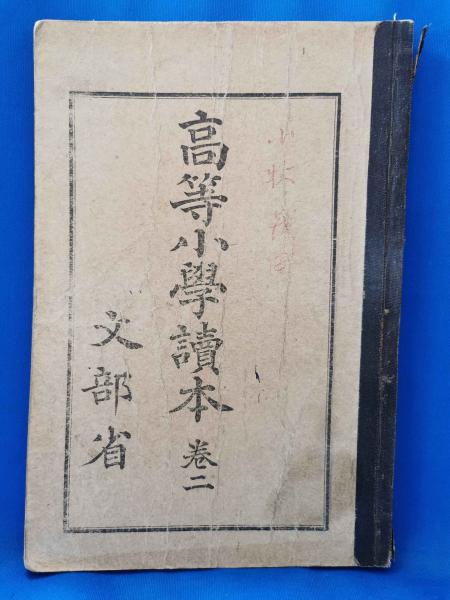 高等小學讀本 巻二
文部省